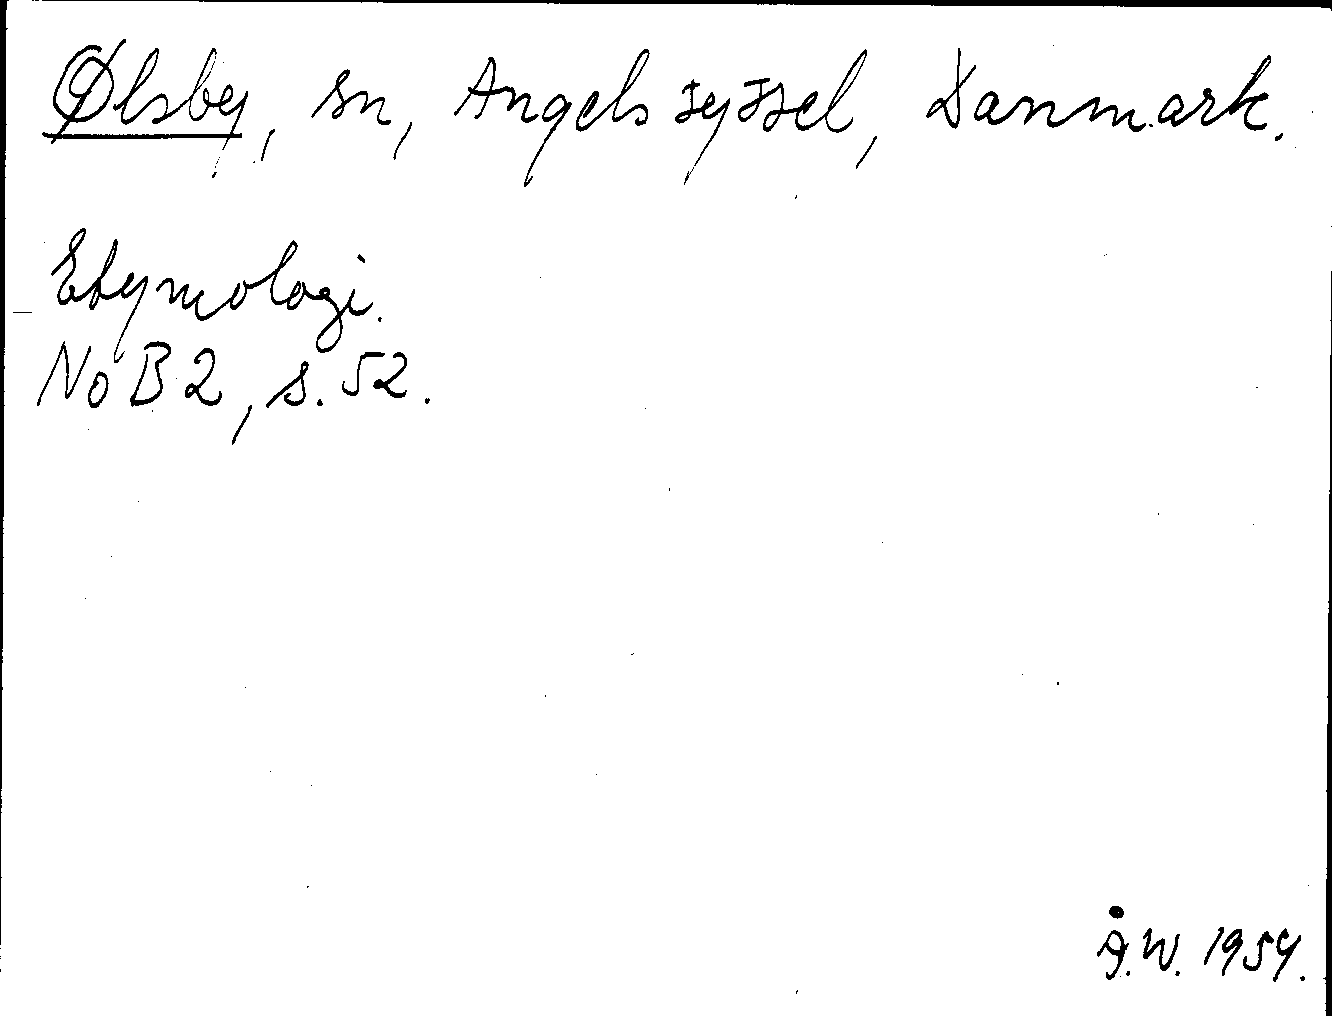 Ølsby, sn, Angels syssel, Danmark.
Etymologi.
NoB 2, s. 52.
Å.W. 1954.